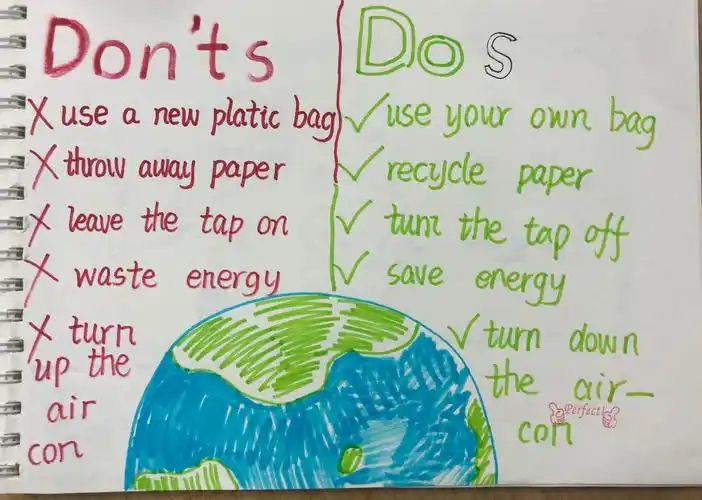 Don'ts
X use a new platic bag
X throw away paper
X leave the tap on
X waste energy
X turn
up the
air
con
Do s
✓ use your own bag
✓ recycle paper
✓ turn the tap off
✓ save energy
✓ turn down
the air-
con
Perfect!